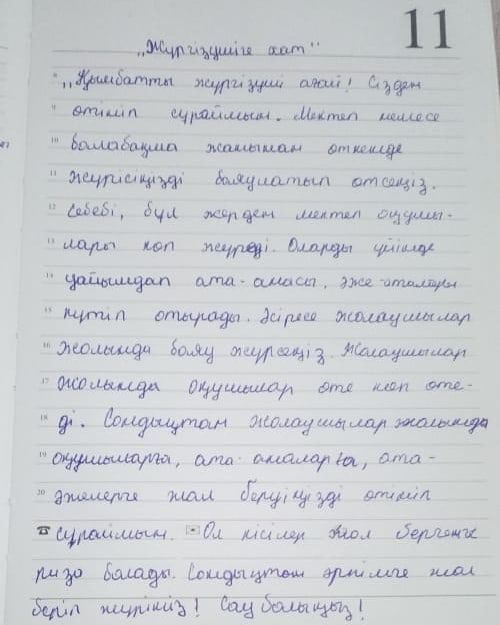 11
„Жүргізушіге хат"
8 „Қымбатты жүргізуші ағай! Сізден
9 өтініп сұраймын. Мектеп немесе
10 балабақша жанынан өткенде
11 жүрісіңізді баяулатып өтсеңіз.
12 Себебі, бұл жерден мектеп оқушы-
13 лары көп жүреді. Оларды үйінде
14 уайымдап ата-анасы, әже-аталары
15 күтіп отырады. Әсіресе жолаушылар
16 жолында баяу жүрсеңіз. Жолаушылар
17 жолында оқушылар өте көп өте-
18 ді. Сондықтан жолаушылар жолында
19 оқушыларға, ата-аналарға, ата-
20 әжелерге жол беруіңізді өтініп
сұраймын. Ол кісілер жол бергенге
риза болады. Сондықтан әркімге жол
беріп жүріңіз! Сау болыңыз!